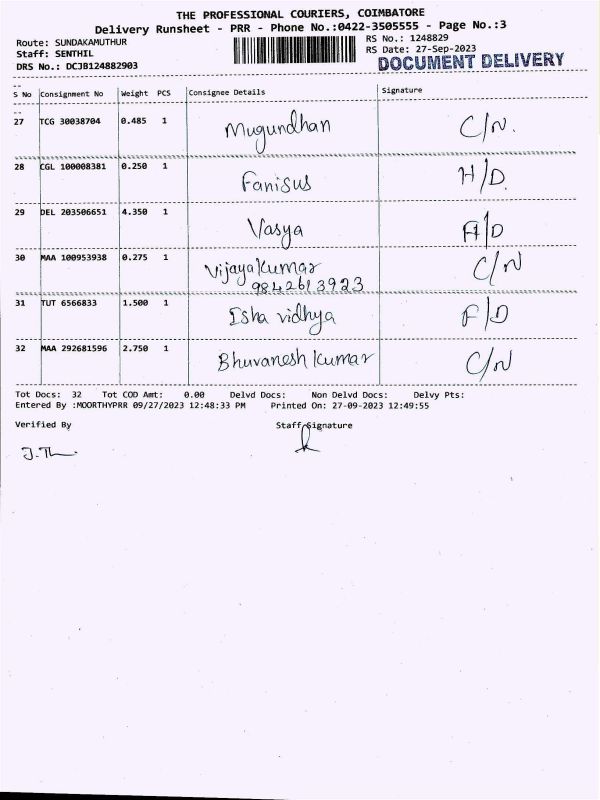 THE PROFESSIONAL COURIERS, COIMBATORE
Delivery Runsheet - PRR - Phone No.:0422-3505555 - Page No.:3
Route: SUNDAKAMUTHUR
RS No.: 1248829
Staff: SENTHIL
RS Date: 27-Sep-2023
DRS No.: DCJB124882903
DOCUMENT DELIVERY
S No Consignment No Weight PCS Consignee Details Signature
27 TCG 30038704 0.485 1 Mugundhan C/N.
28 CGL 100008381 0.250 1 Fanisus H/D.
29 DEL 203506651 4.350 1 Vasya A/D
30 MAA 100953938 0.275 1 Vijayakumar C/N
9842613923
31 TUT 6566833 1.500 1 Isha vidhya F/D
32 MAA 292681596 2.750 1 Bhuvanesh kumar C/N
Tot Docs: 32 Tot COD Amt: 0.00 Delvd Docs: Non Delvd Docs: Delvy Pts:
Entered By :MOORTHYPRR 09/27/2023 12:48:33 PM Printed On: 27-09-2023 12:49:55
Verified By Staff Signature